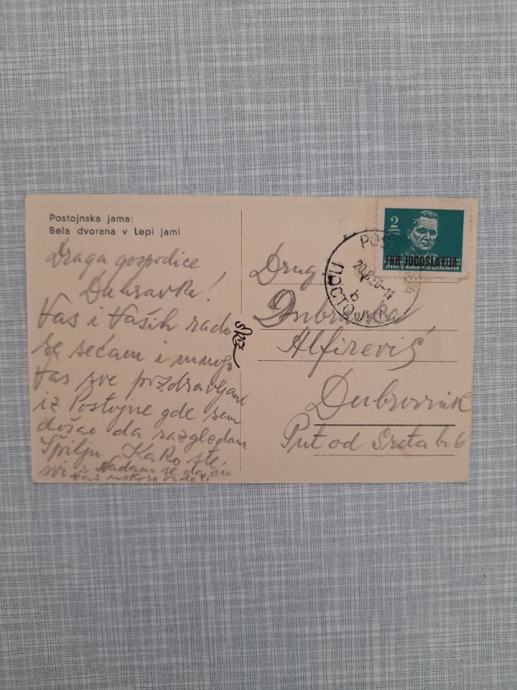 Postojnska jama:
Bela dvorana v Lepi jami
Draga gospodice
Dubravka!
Vas i Vaših rado
se sećam i mnogo
Vas sve pozdravljam
iz Postojne gde sem
došao da razgledam
Špilju. Kako ste
svi? Nadam se da ću
Vas uskoro videti
Drug
Dubravka
Alfirević
Dubrovnik
Put od Sreta b. 6
2
FNR JUGOSLAVIJA